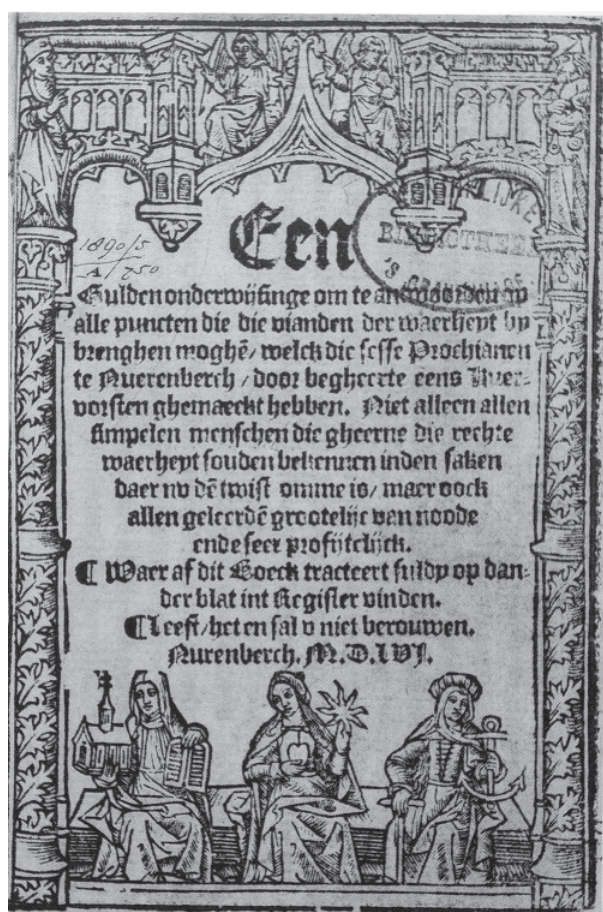 Een
Gulden onderwijsinge om te antwoorden op
alle puncten die die vianden der waerheyt by
brenghen moghē/ welck die sesse Prochianen
te Nuerenberch / door begheerte eens Kuer-
vorsten ghemaeckt hebben. Niet alleen allen
simpelen menschen die gheerne die rechte
waerheyt souden bekennen inden saken
daer nv dē twist omme is/ maer oock
allen geleerdē grootelijc van noode
ende seer profijtelijck.
¶ Waer af dit Boeck tracteert suldy op dan-
der blat int Register vinden.
¶ Leest/het en sal v niet berouwen.
Nurenberch. M.D.LVJ.
1890/5
A/750
BIBLIOTHEEK